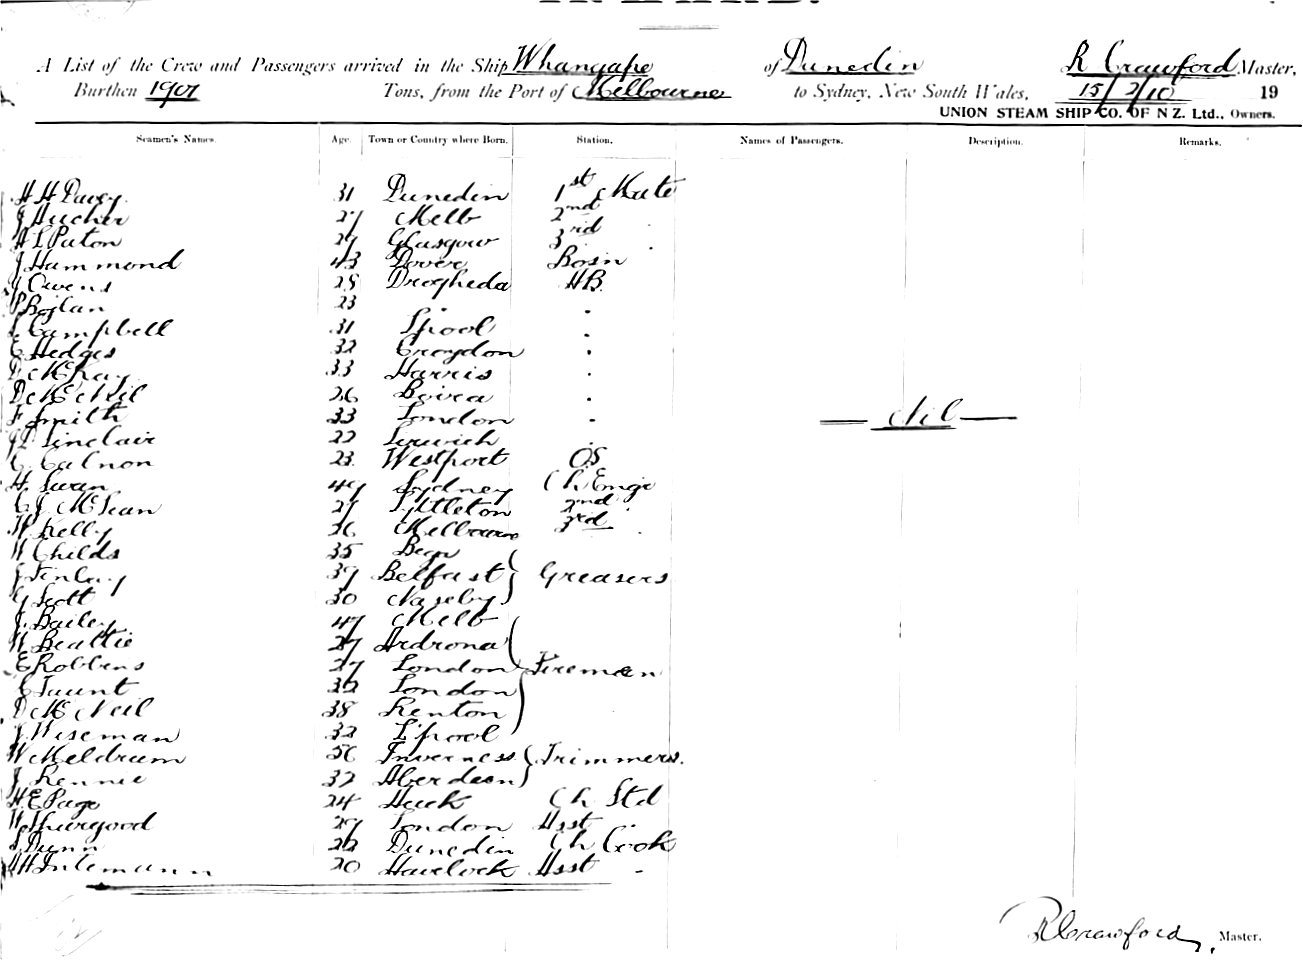 A List of the Crew and Passengers arrived in the Ship Whangape of Dunedin R Crawford Master,
Burthen 1907 Tons, from the Port of Melbourne to Sydney, New South Wales, 15/2/10 19
UNION STEAM SHIP CO. OF N Z. Ltd., Owners.
Seamen's Names. Age. Town or Country where Born. Station. Names of Passengers. Description. Remarks.
H H Davey 31 Dunedin 1st Mate
J Hucher 27 Melb 2nd
A L Paton 27 Glasgow 3rd "
J Hammond 43 Dover Bosn
J Owens 28 Drogheda AB
P Boylan 23 " "
Campbell 31 L'pool "
E Hedges 32 Croydon "
D McKay 33 Harris "
D McNeil 26 "
F Smith 33 London " — Nil —
J D Sinclair 22 Lerwick "
C Calnon 23 Westport OS
H. Swan 47 Sydney Ch Engr
C J McLean 27 Lyttleton 2nd
W Kelly 26 Melbourne 3rd "
W Childs 35
J Finlay 39 Belfast Greasers
G Scott 30 Naseby
J. Bailey 47 Melb
W Beattie 27 Ardrona
E Robbins 27 London Firemen
C Taunt 32 London
D McNeil 38 Renton
J Wiseman 32 L'pool
W Meldrum 56 Inverness Trimmers.
J Rennie 32 Aberdeen
H E Page 24 Ch Std
W Thurgood 27 London Asst "
S Dunn 22 Dunedin Ch Cook
A H Intemann 20 Havelock Asst "
R Crawford, Master.